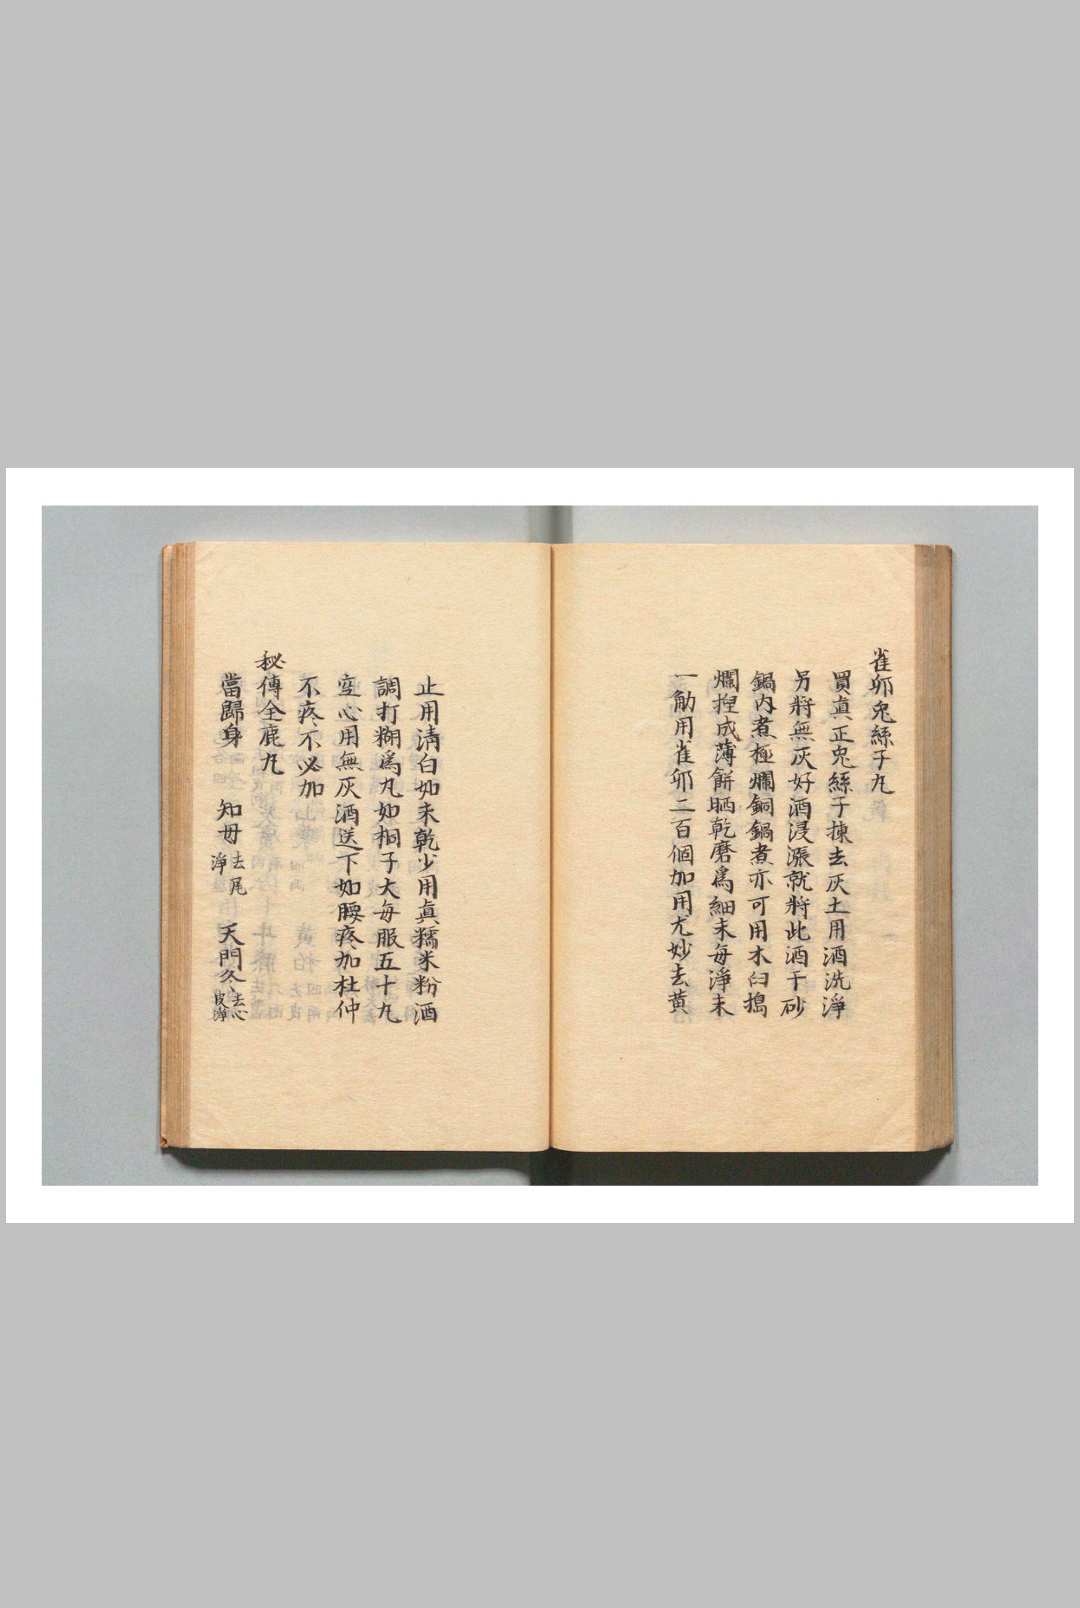 雀卵兎絲子丸
買真正兎絲子揀去灰土用酒洗淨
另將無灰好酒浸漲就將此酒于砂
鍋内煮極爛銅鍋煮亦可用木臼搗
爛捏成薄餅晒乾磨爲細末每淨末
一觔用雀卵二百個加用尤妙去黄
止用清白如末乾少用真糯米粉酒
調打糊爲丸如桐子大每服五十丸
空心用無灰酒送下如腰疼加杜仲
不疼不必加
秘傳全鹿丸
當歸身 知母去尾淨 天門冬去心皮淨